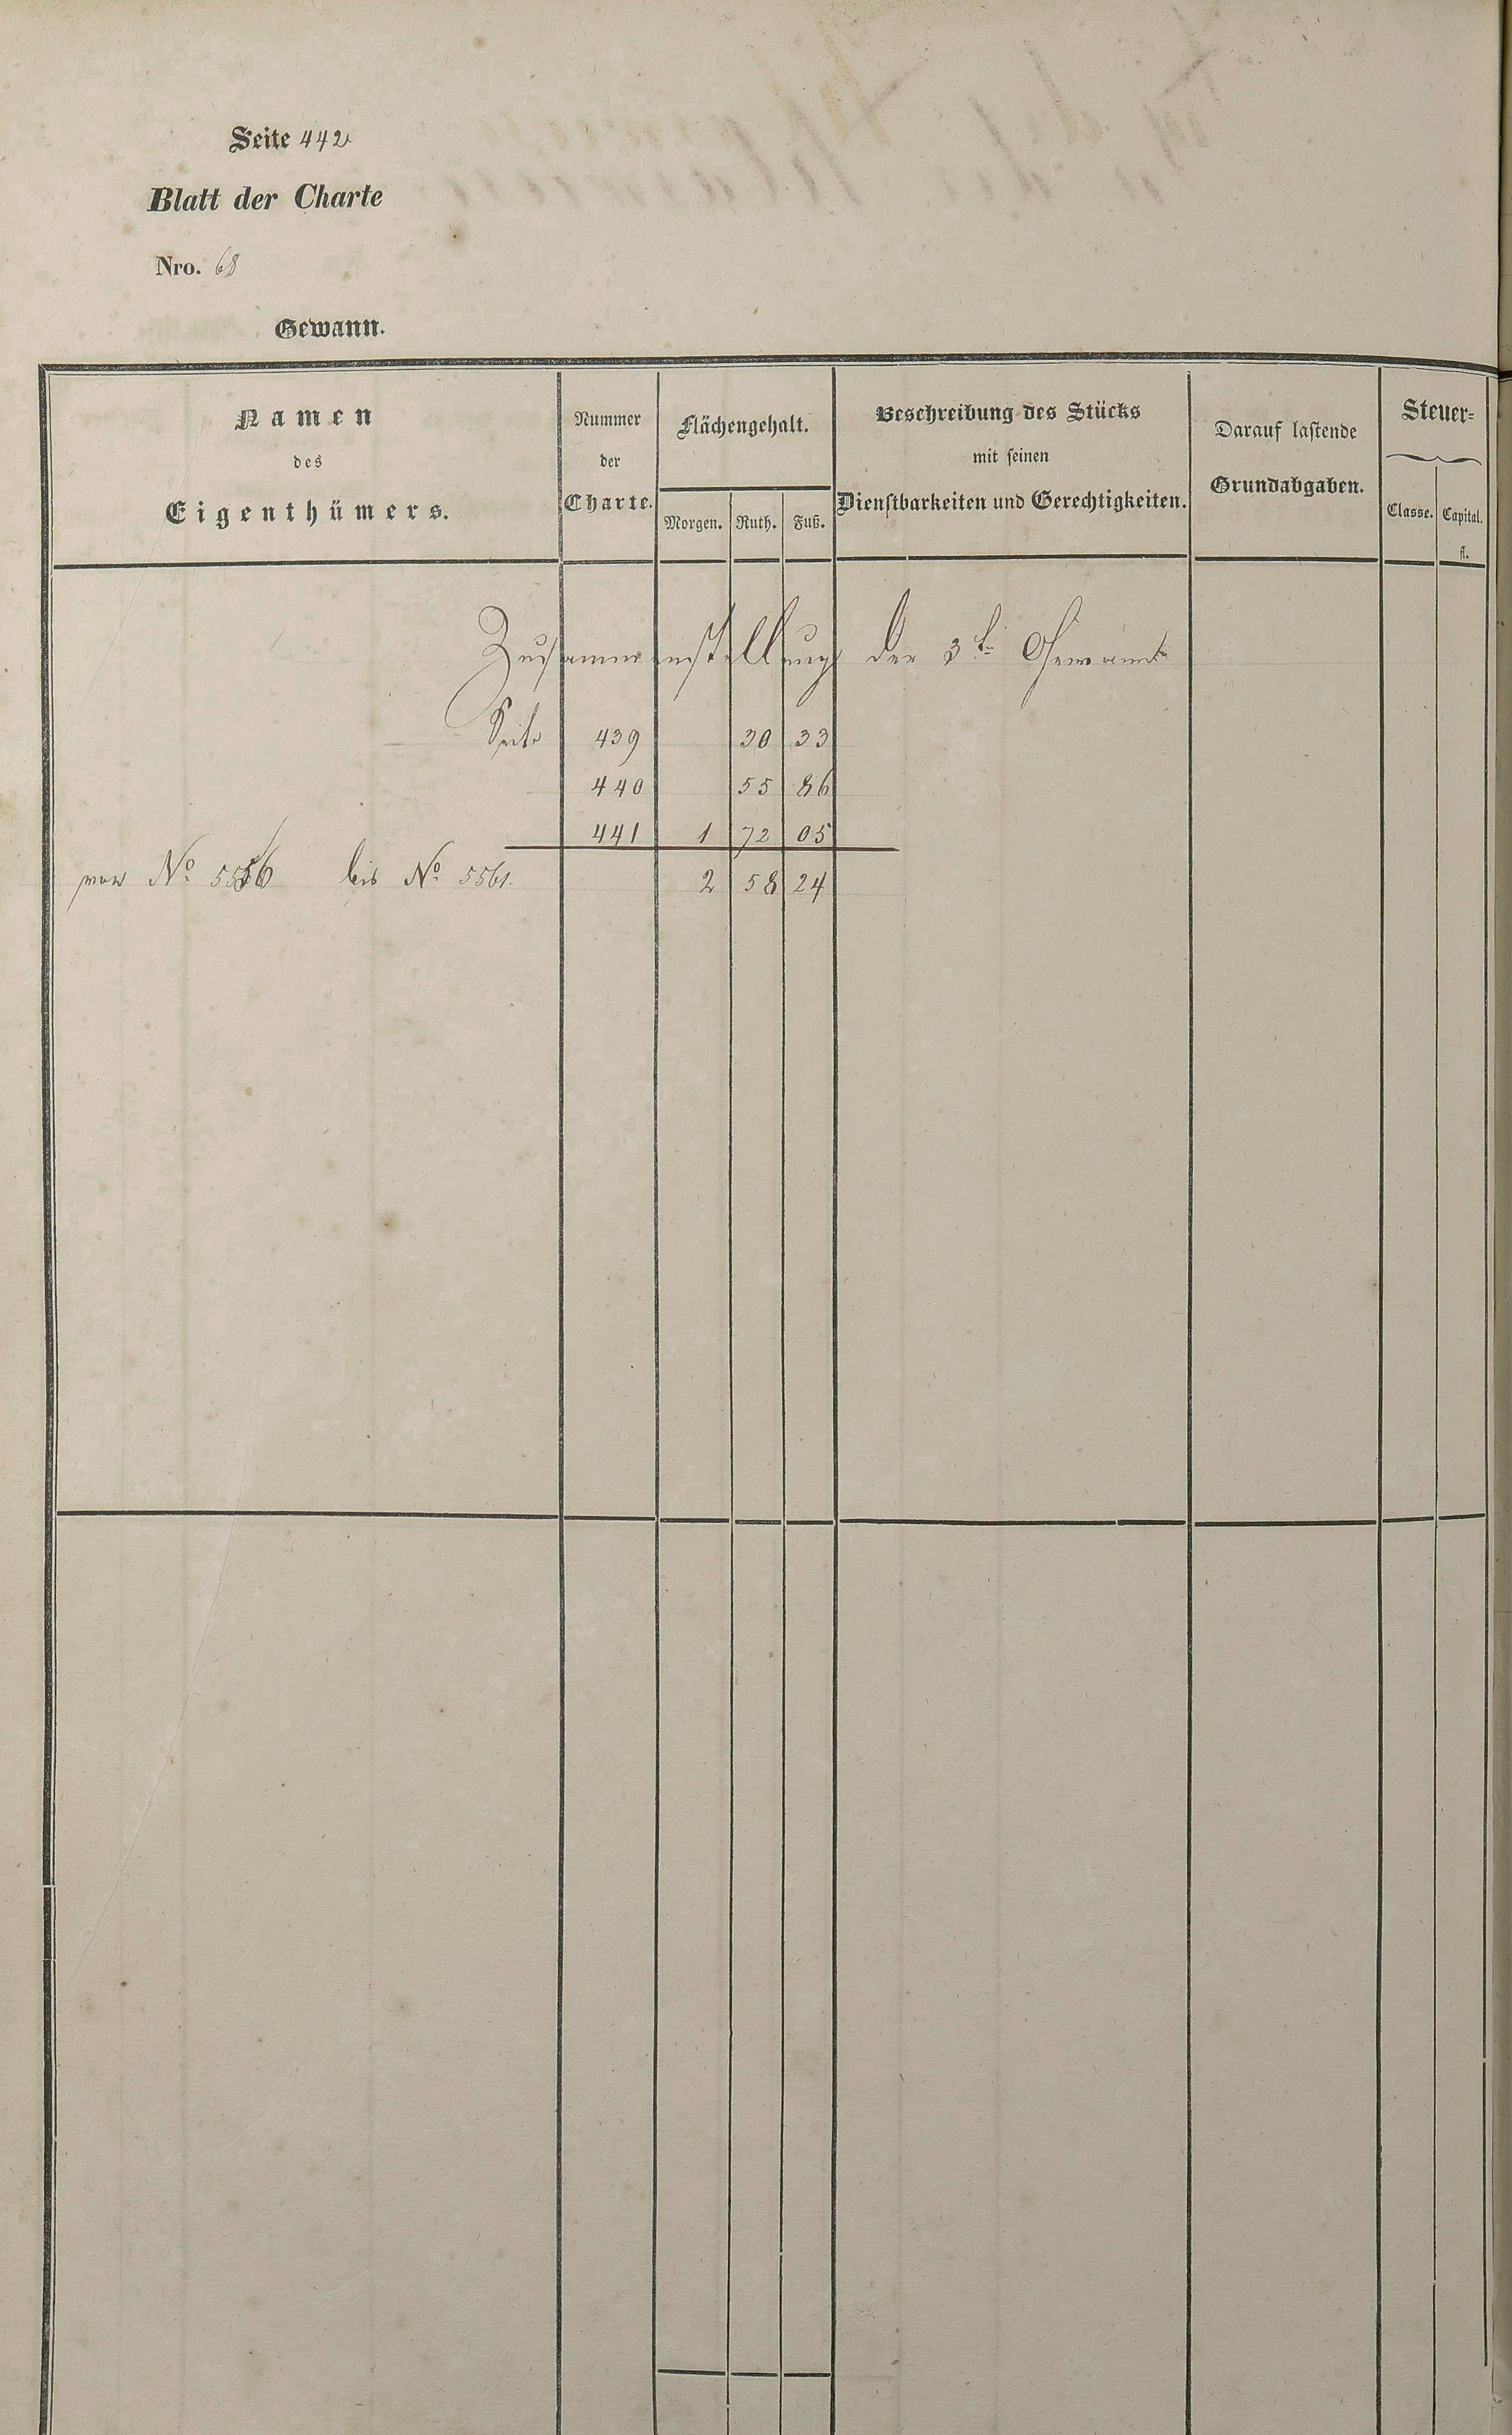 Seite 442
Blatt der Charte
Nro. 68
Gewann.
Namen
des
Eigenthümers.
Nummer
der
Charte.
Flächengehalt.
Morgen. Ruth. Fuß.
Beschreibung des Stücks
mit seinen
Dienstbarkeiten und Gerechtigkeiten.
Darauf lastende
Grundabgaben.
Steuer-
Classe. Capital.
fl.
Zusammenstellung der 3te Gewann
Seite 439 30 33
440 55 86
441 1 72 05
von No 5556 bis No 5561. 2 58 24